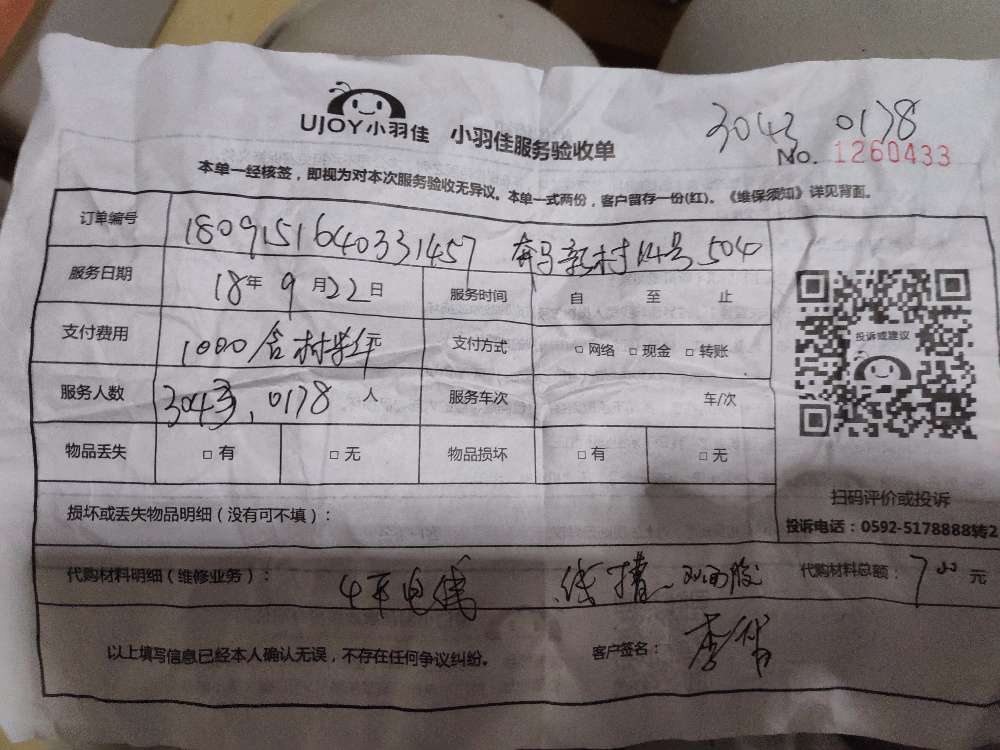 3043 0178
UJOY小羽佳 小羽佳服务验收单
No. 1260433
本单一经核签，即视为对本次服务验收无异议。本单一式两份，客户留存一份(红)。《维保须知》详见背面。
订单编号 1809151640331457 奔马新村 号504
服务日期 18年9月22日 服务时间 自 至 止
投诉或建议
支付费用 1000含材 支付方式 □ 网络 □ 现金 □ 转账
服务人数 3043,0178 人 服务车次 车/次
物品丢失 □ 有 □ 无 物品损坏 □ 有 □ 无
扫码评价或投诉
损坏或丢失物品明细（没有可不填）：
投诉电话：0592-5178888转2
代购材料明细（维修业务）： 4平电线 线槽 双面胶 代购材料总额： 元
以上填写信息已经本人确认无误，不存在任何争议纠纷。 客户签名：